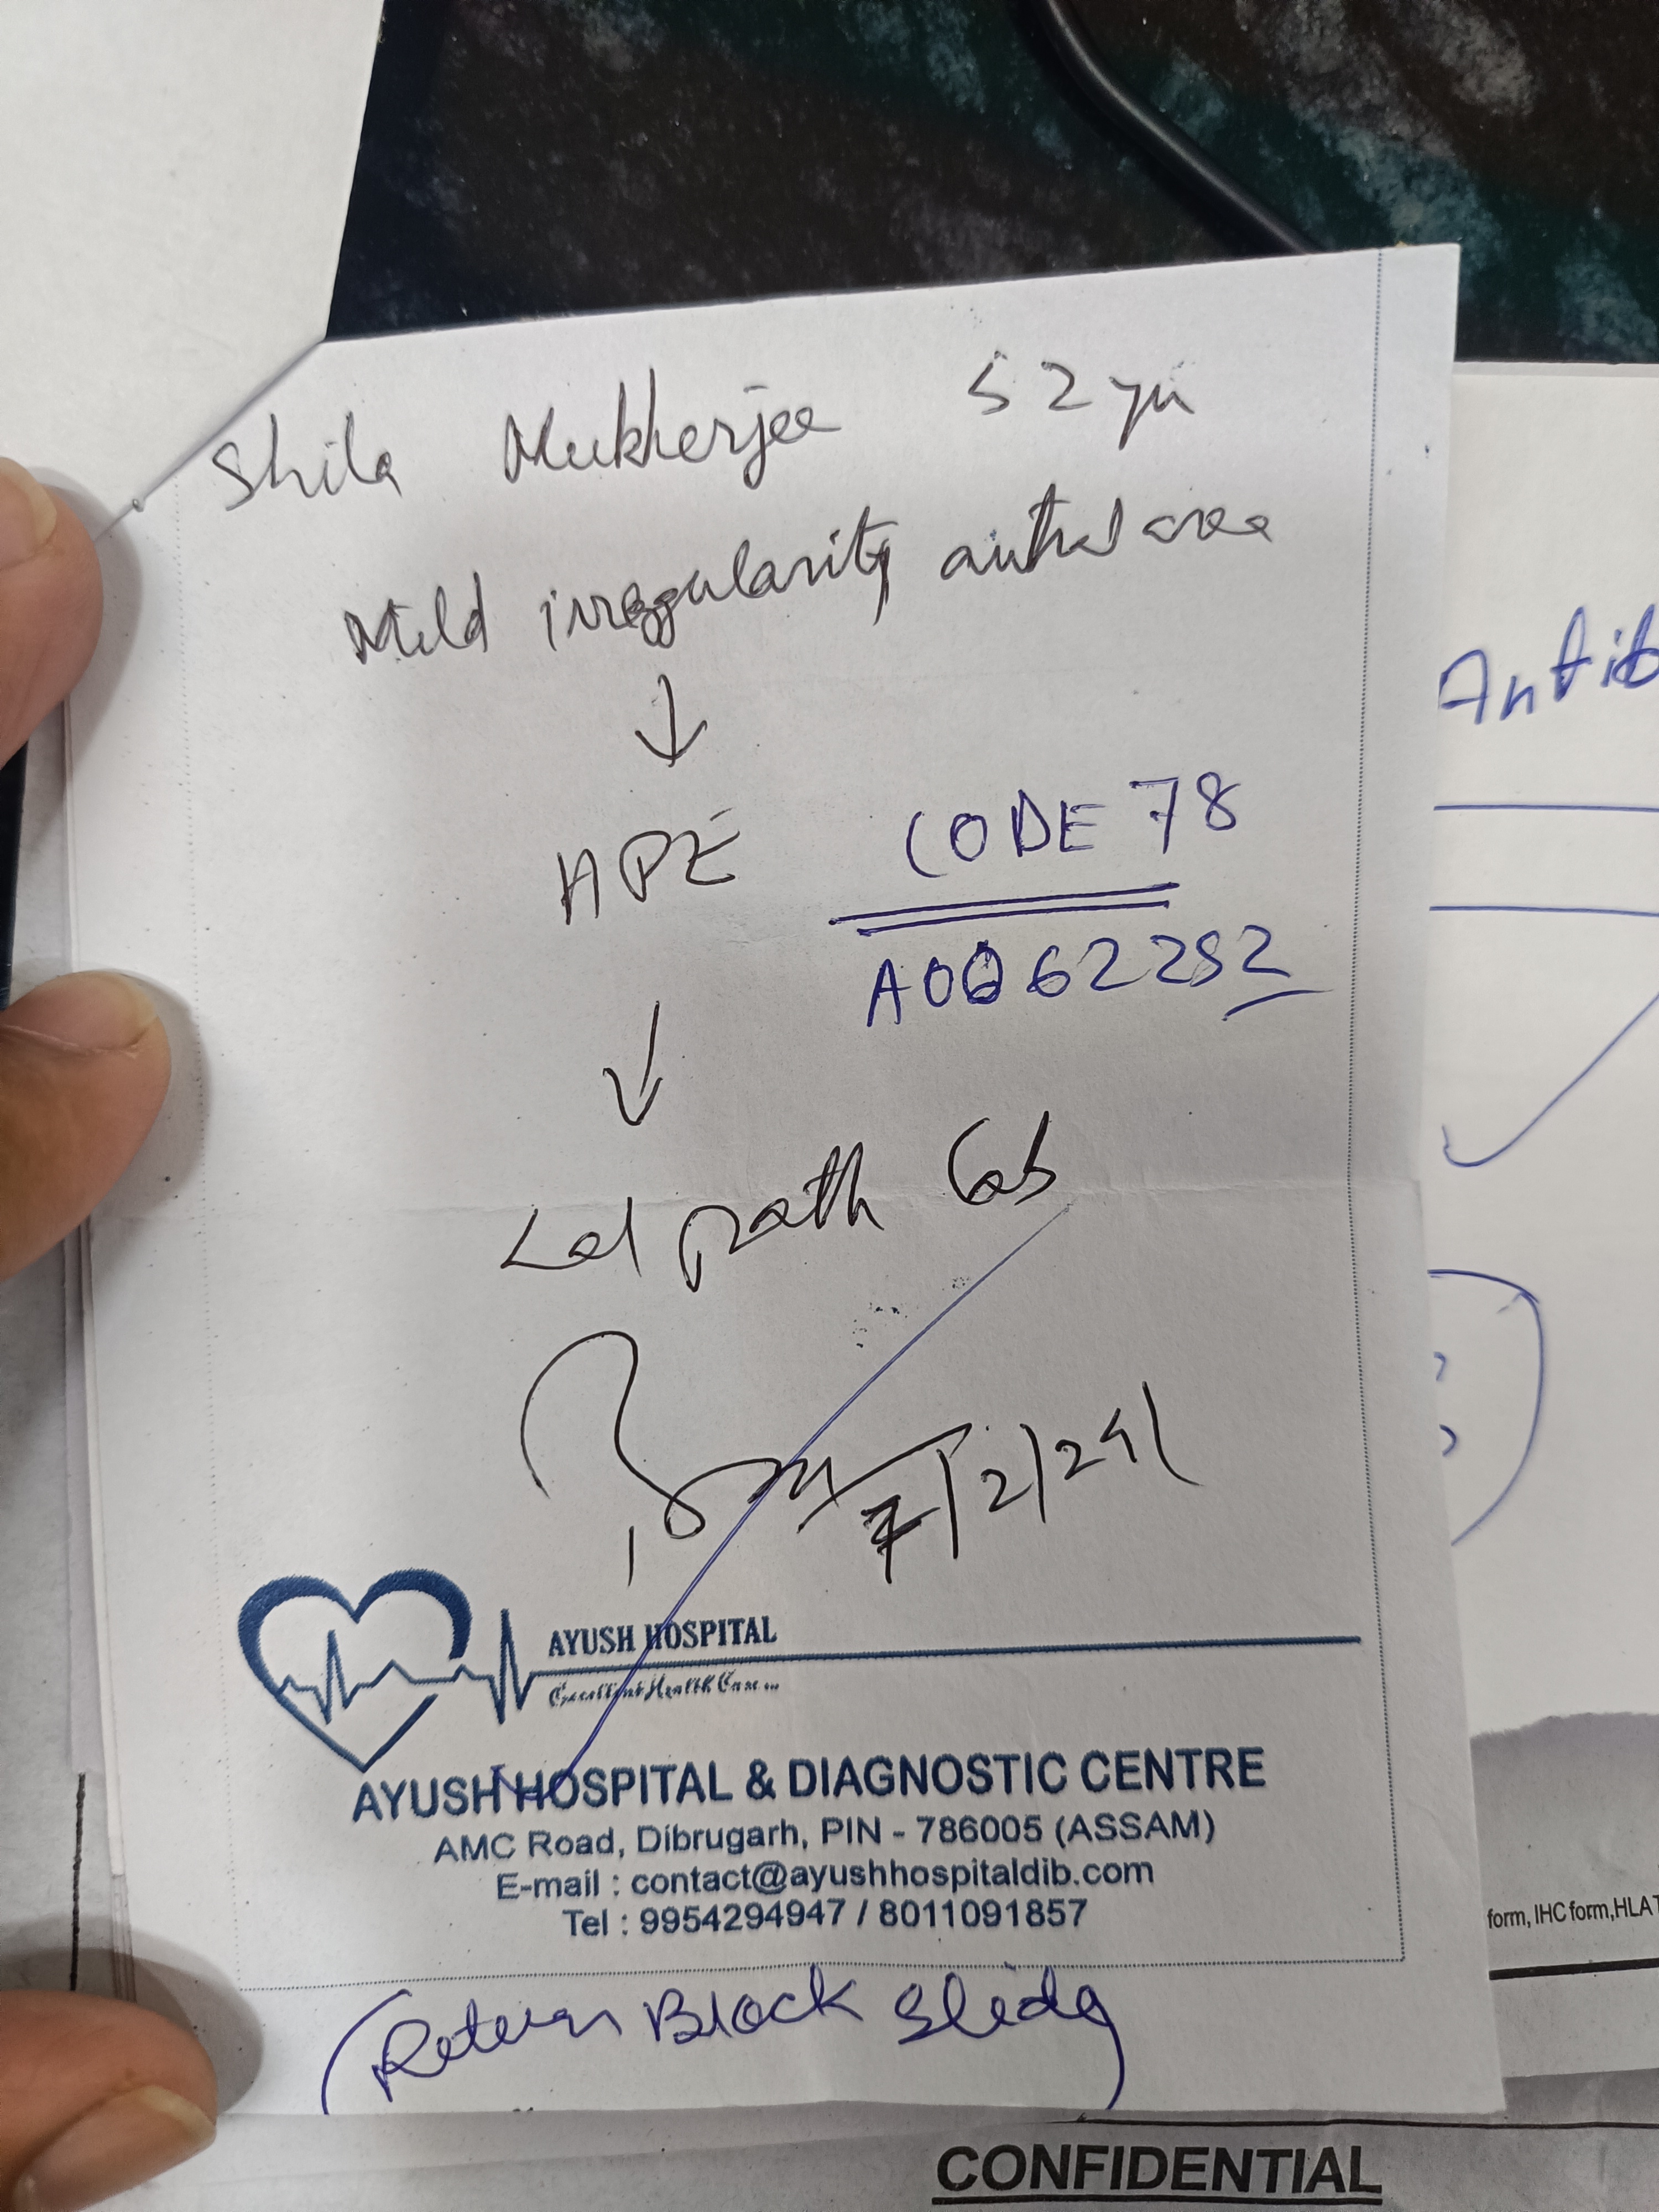 Shila Mukherjee 52 yr
Mild irregularity antral area
↓
HPE
CODE 78
A0062252
↓
Lal path Lab
7/2/24
AYUSH HOSPITAL
Excellent Health Care...
AYUSH HOSPITAL & DIAGNOSTIC CENTRE
AMC Road, Dibrugarh, PIN - 786005 (ASSAM)
E-mail : contact@ayushhospitaldib.com
Tel : 9954294947 / 8011091857
(Return Block Slide)
Antib
form, IHC form, HLA T
CONFIDENTIAL